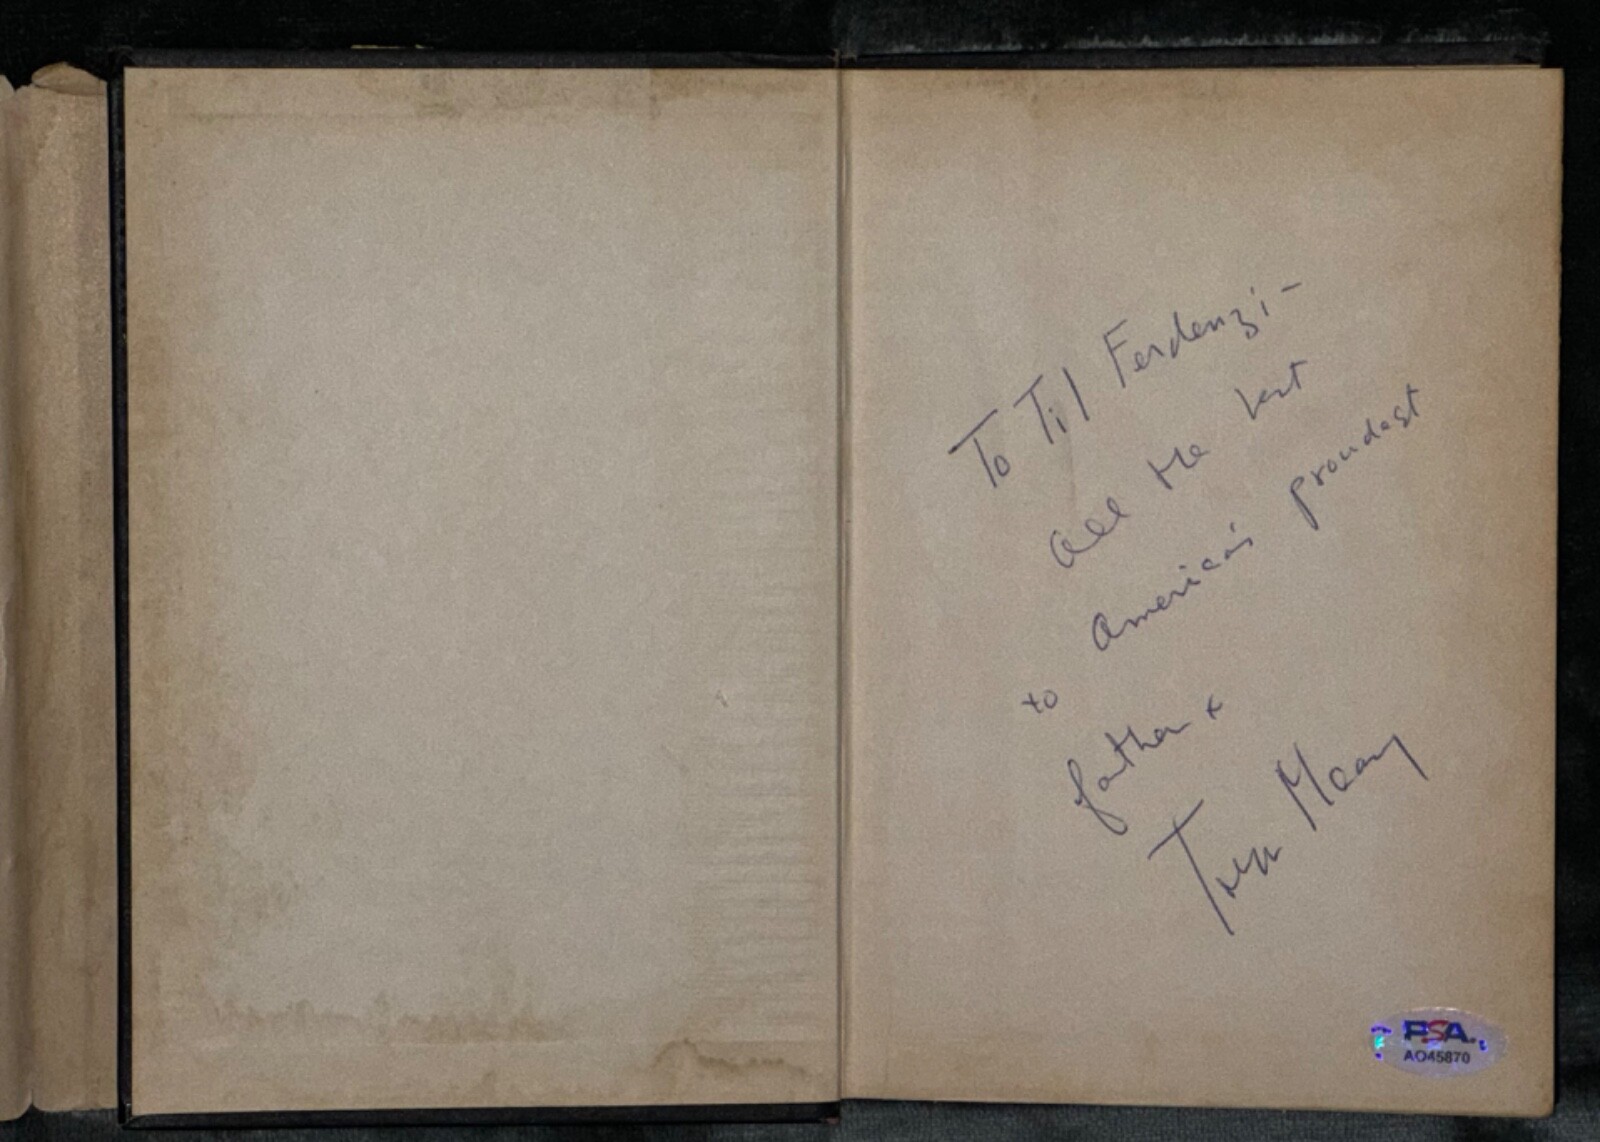 To Til Ferdenzi -
All the best
to America's proudest
father x
Tom Meany
PSA
AO45870